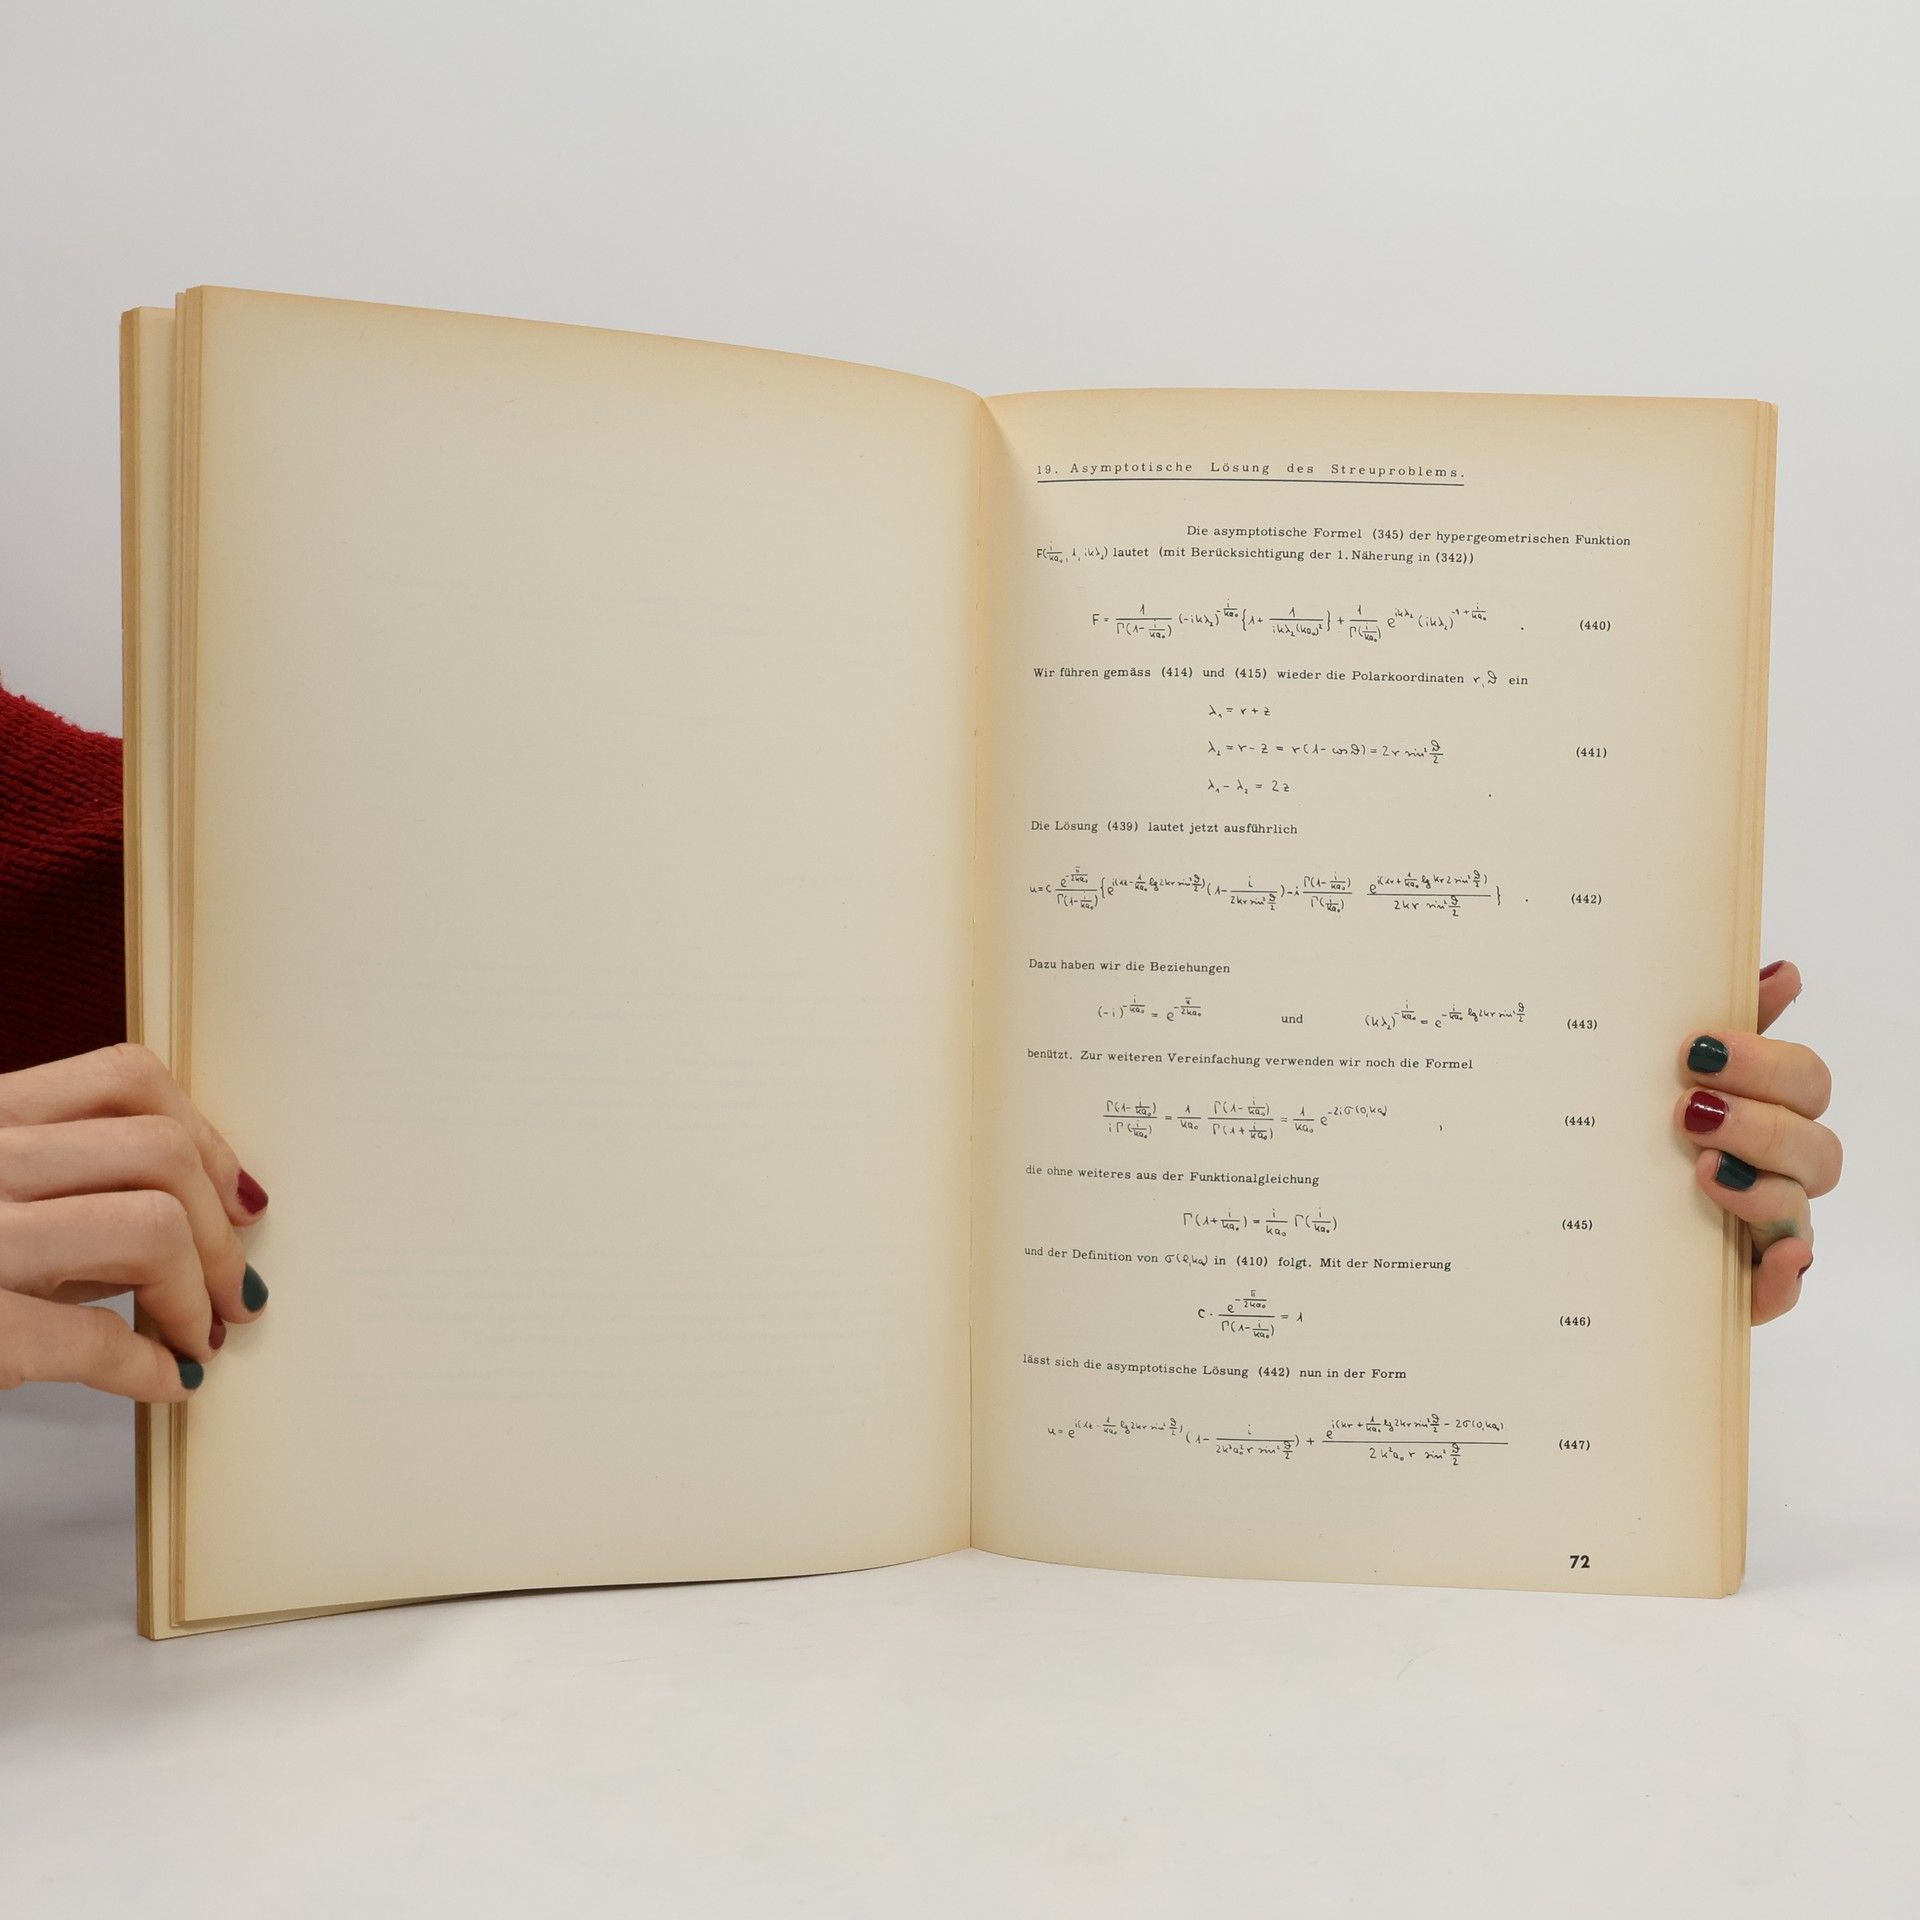 19. Asymptotische Lösung des Streuproblems.
Die asymptotische Formel (345) der hypergeometrischen Funktion
F(i/ka₀, 1, ikλ₂) lautet (mit Berücksichtigung der 1. Näherung in (342))
F = 1/Γ(1-i/ka₀) (-ikλ₂)^(-i/ka₀) {1 + 1/(ikλ₂(ka₀)²)} + 1/Γ(i/ka₀) e^(ikλ₂) (ikλ₂)^(-1+i/ka₀) . (440)
Wir führen gemäss (414) und (415) wieder die Polarkoordinaten r, ϑ ein
λ₁ = r + z
λ₂ = r - z = r(1 - cosϑ) = 2r sin² ϑ/2 (441)
λ₁ - λ₂ = 2z .
Die Lösung (439) lautet jetzt ausführlich
u = c e^(-π/2ka₀)/Γ(1-i/ka₀) {e^(i(kz - 1/ka₀ lg 2kr sin² ϑ/2)) (1 - i/(2kr sin² ϑ/2)) - i Γ(1-i/ka₀)/Γ(i/ka₀) e^(i(kr + 1/ka₀ lg kr 2 sin² ϑ/2))/(2kr sin² ϑ/2)} . (442)
Dazu haben wir die Beziehungen
(-i)^(-i/ka₀) = e^(-π/2ka₀) und (kλ₂)^(-i/ka₀) = e^(-i/ka₀ lg 2kr sin² ϑ/2) (443)
benützt. Zur weiteren Vereinfachung verwenden wir noch die Formel
Γ(1-i/ka₀)/(iΓ(i/ka₀)) = 1/ka₀ Γ(1-i/ka₀)/Γ(1+i/ka₀) = 1/ka₀ e^(-2iσ(0,ka₀)) , (444)
die ohne weiteres aus der Funktionalgleichung
Γ(1+i/ka₀) = i/ka₀ Γ(i/ka₀) (445)
und der Definition von σ(ℓ,ka₀) in (410) folgt. Mit der Normierung
c · e^(-π/2ka₀)/Γ(1-i/ka₀) = 1 (446)
lässt sich die asymptotische Lösung (442) nun in der Form
u = e^(i(kz - 1/ka₀ lg 2kr sin² ϑ/2)) (1 - i/(2k³a₀²r sin² ϑ/2)) + e^(i(kr + 1/ka₀ lg 2kr sin² ϑ/2 - 2σ(0,ka₀)))/(2k²a₀ r sin² ϑ/2) (447)
72